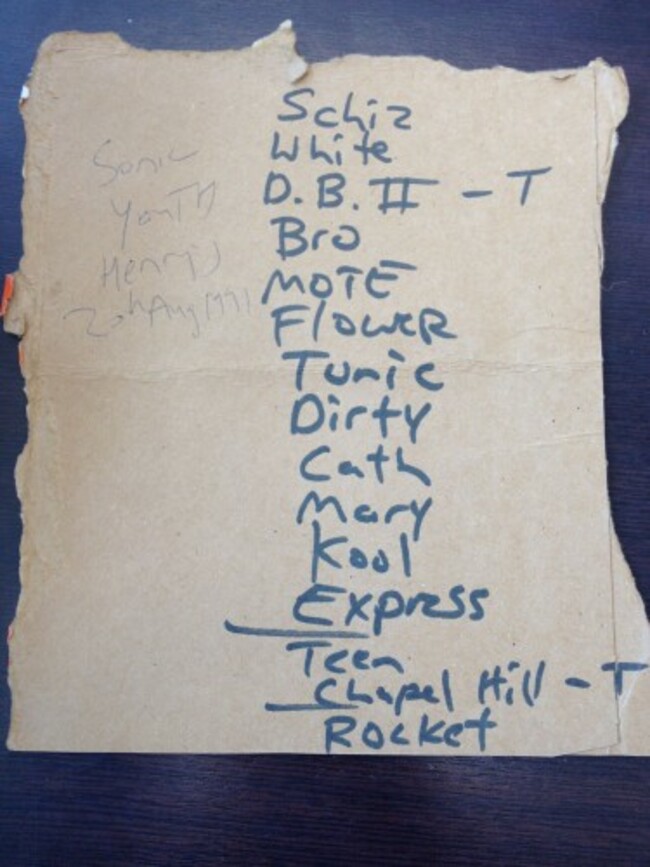 Schiz
White
D.B. II - T
Bro
MOTE
FlOWER
Tunic
Dirty
Cath
Mary
Kool
Express
Teen
Chapel Hill - T
Rocket
Sonic
Youth
Henry's
20th Aug 1991